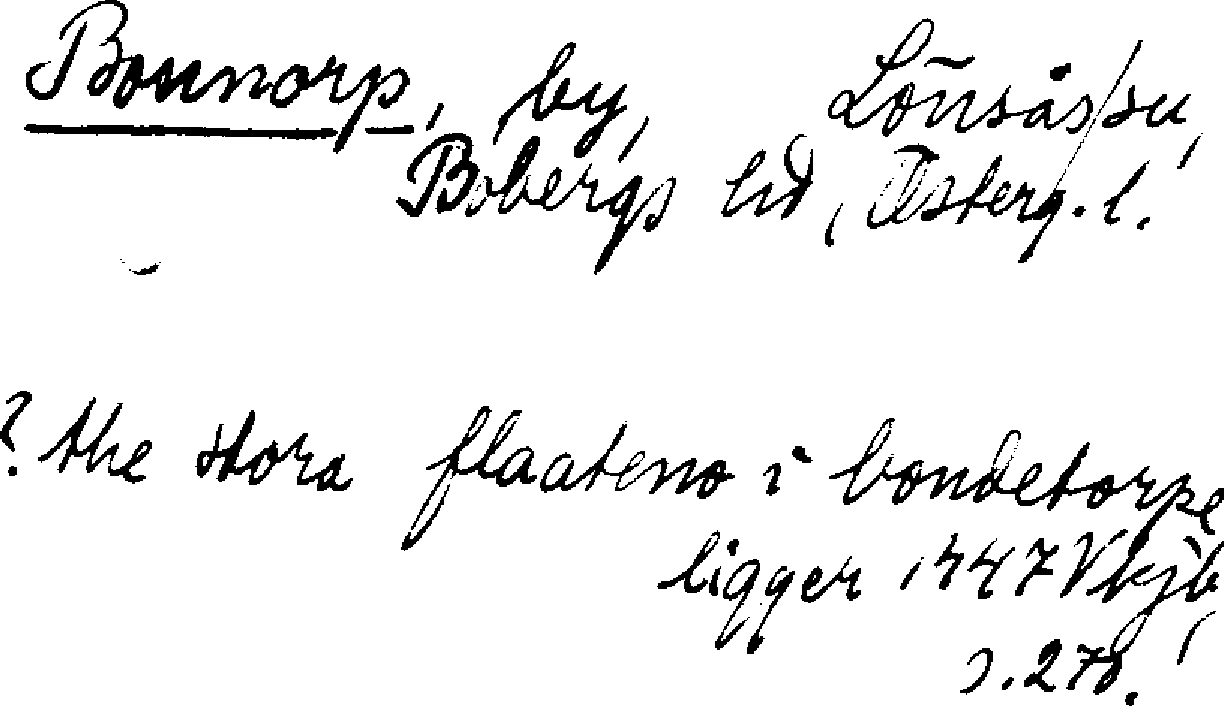 Bonnorp, by, Lönsås sn,
Bobergs hd, Österg. l.
? the stora flaateno i bondetorpe
ligger 1447 Vkjb,
s. 270.